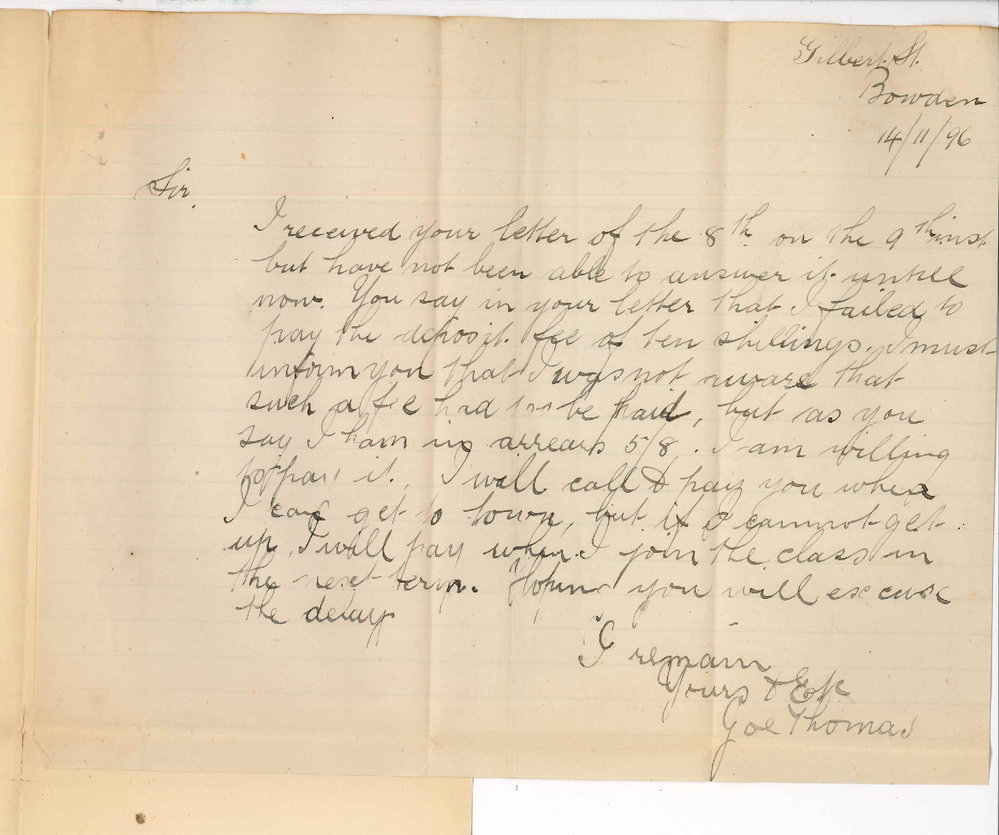 Gilbert St.
Bowden
14/11/96
Sir,
I received your letter of the 8th on the 9th inst
but have not been able to answer it untill
now. You say in your letter that I failed to
pay the deposit fee of ten shillings. I must
inform you that I was not aware that
such a fee had to be paid, but as you
say I ham in arrears 5/8, I am willing
to pay it. I will call & pay you when
I can get to town, but if I cannot get
up I will pay when I join the class in
the next term. Hoping you will excuse
the delay
I remain
Yours &
Joe Thomas